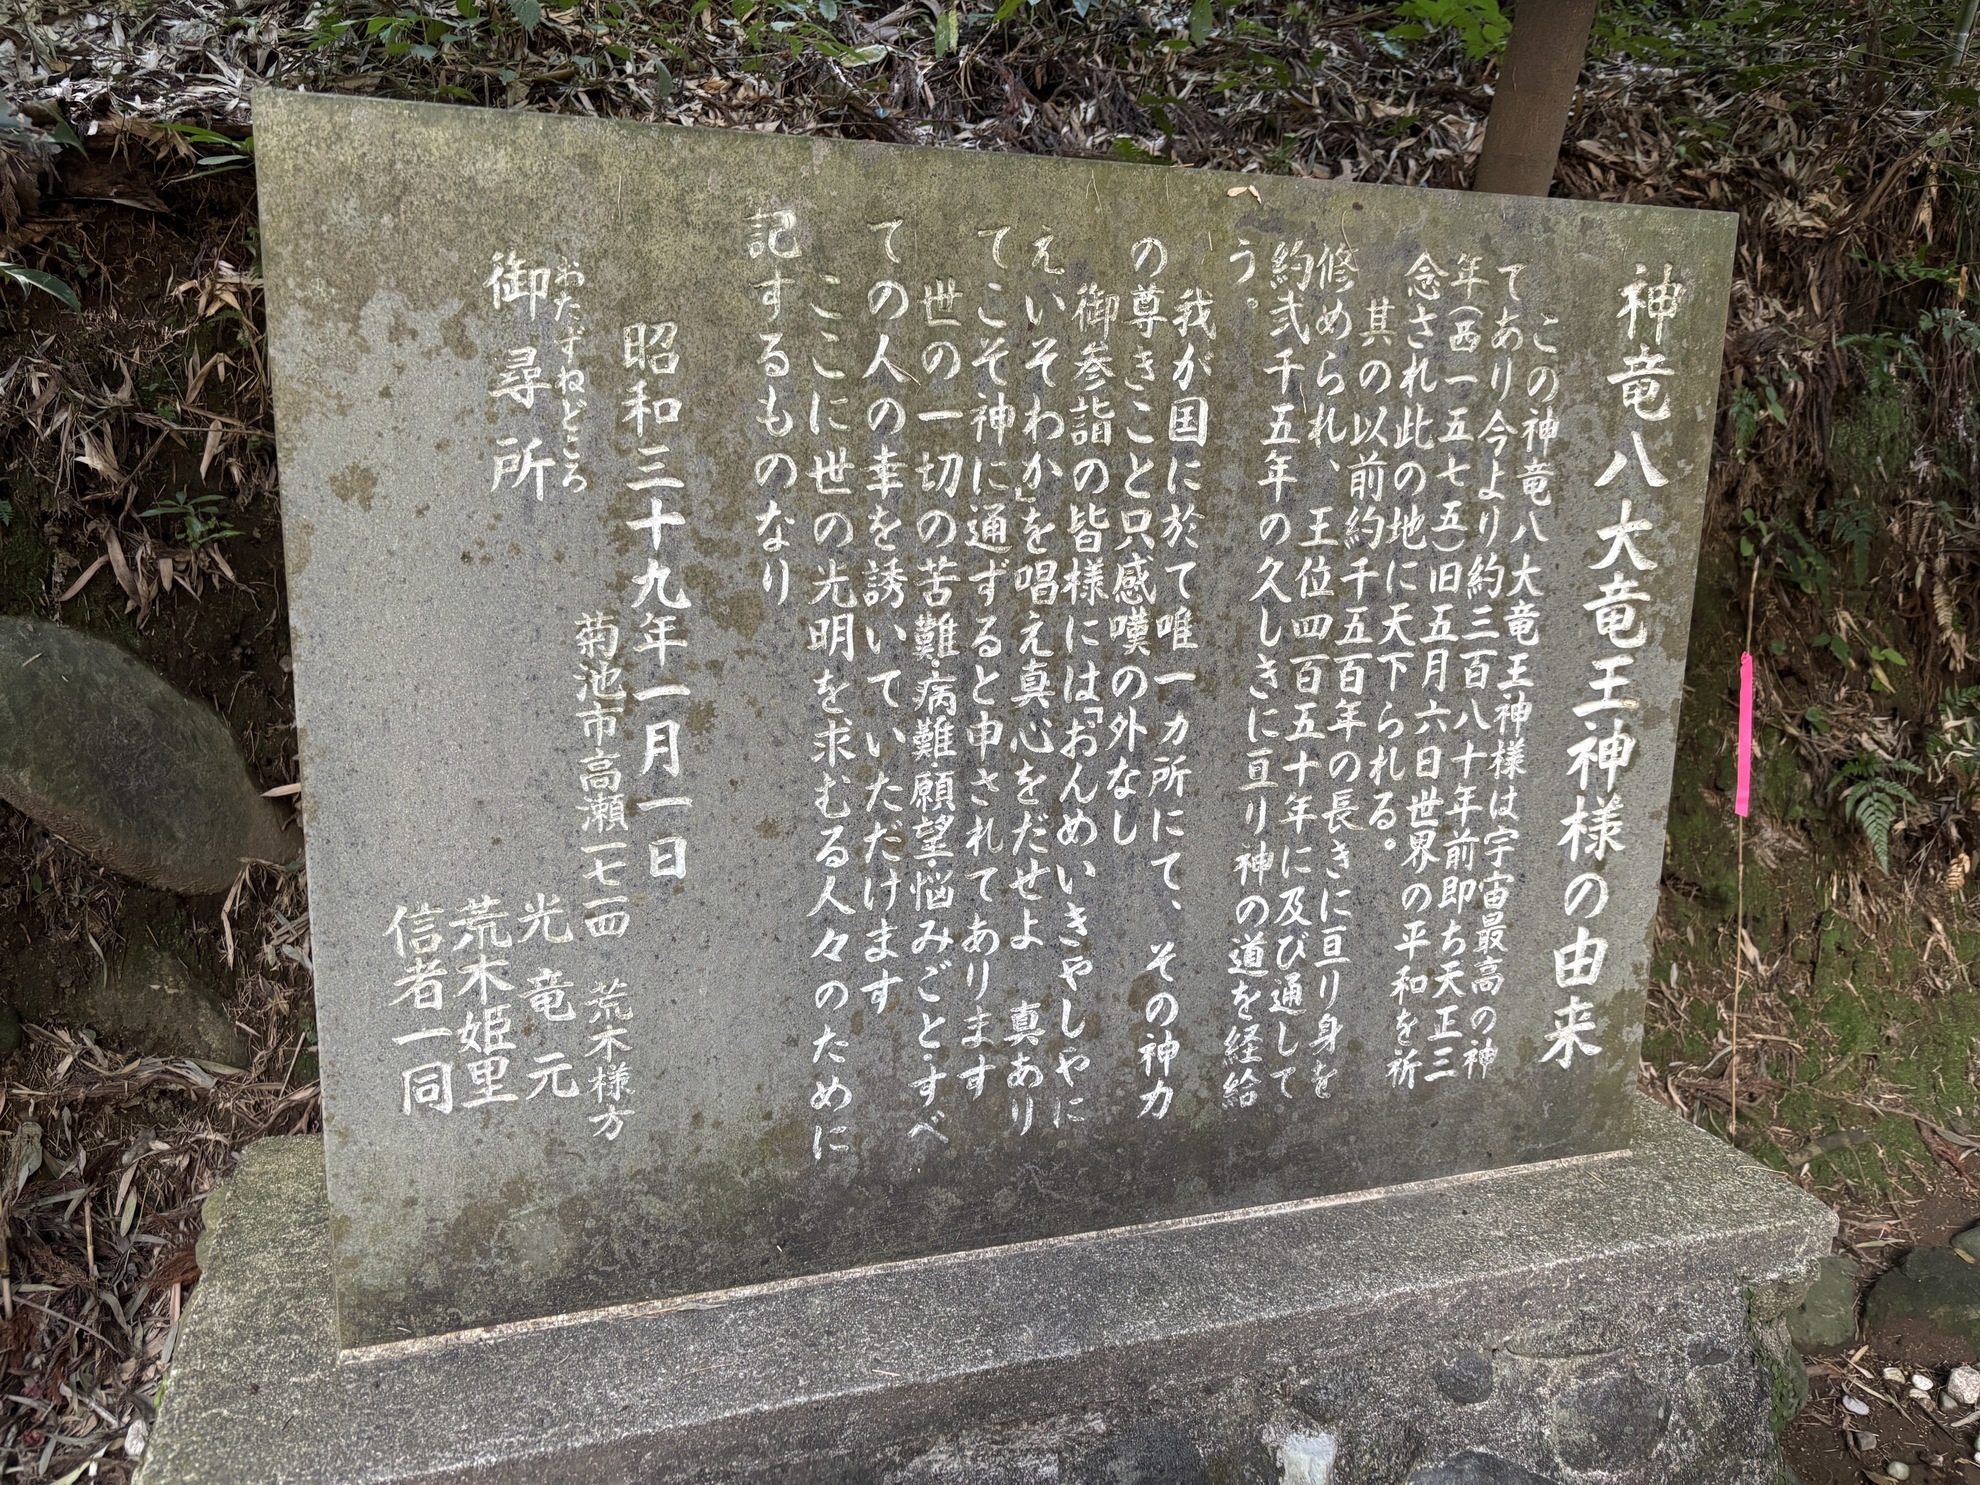 神竜八大竜王神様の由来
この神竜八大竜王神様は宇宙最高の神
てあり今より約三百八十年前即ち天正三
年(西一五七五)旧五月六日世界の平和を祈
念され此の地に天下られる。
其の以前約千五百年の長きに亘り身を
修められ、王位四百五十年に及び通して
約弐千五年の久しきに亘り神の道を経給
う。
我が国に於て唯一カ所にて、その神力
の尊きこと只感嘆の外なし
御参詣の皆様には「おんめいきやしやに
えいそわか」を唱え真心をだせよ 真あり
てこそ神に通ずると申されてあります
世の一切の苦難・病難・願望・悩みごと・すべ
ての人の幸を誘いていただけます
ここに世の光明を求むる人々のために
記するものなり
昭和三十九年一月一日
菊池市高瀬一七一四 荒木様方
おたずねどころ
御尋所
光竜元
荒木姫里
信者一同